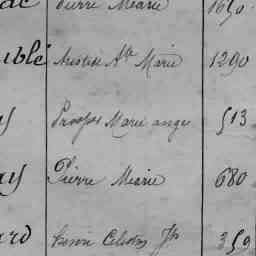 Pierre Marie 1690
ublé Aristide Ate Marie 1290
Prosper Marie ange 513
Pierre Marie 680
ard Jh 359